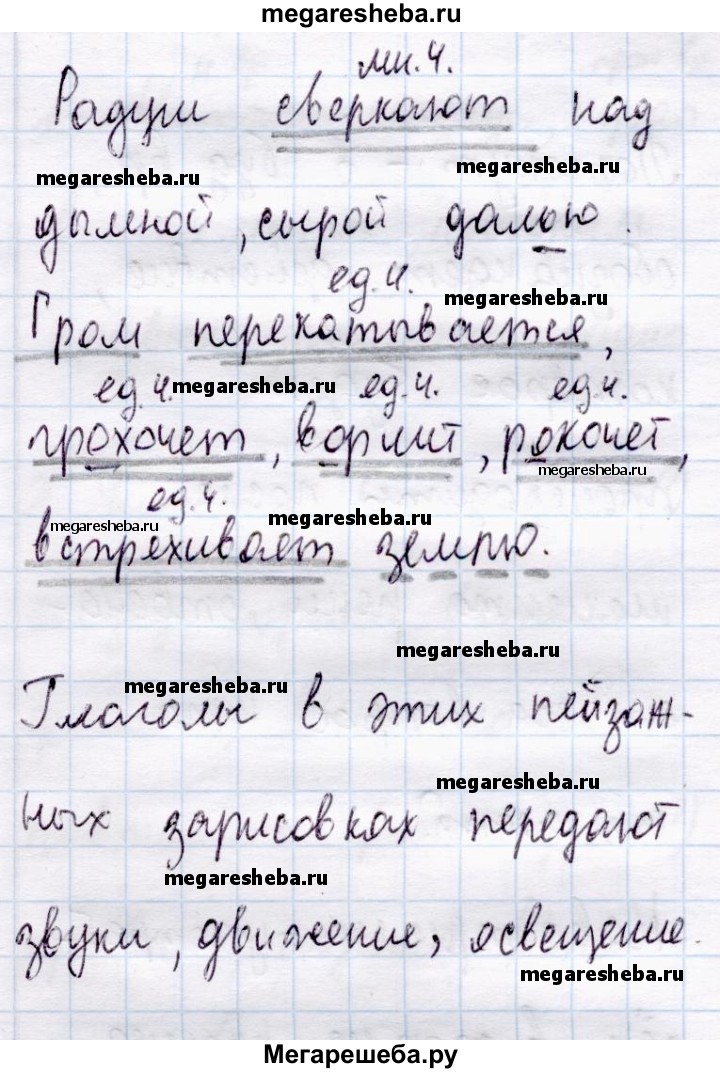 megaresheba.ru
мн.ч.
Радуги сверкают над
megaresheba.ru
megaresheba.ru
дымной, сырой далью.
ед.ч.
megaresheba.ru
Гром перекатывается,
ед.ч. megaresheba.ru ед.ч. ед.ч.
грохочет, ворчит, рокочет,
megaresheba.ru
ед.ч.
megaresheba.ru
megaresheba.ru
встряхивает землю.
megaresheba.ru
megaresheba.ru
Глаголы в этих пейзаж-
megaresheba.ru
ных зарисовках передают
megaresheba.ru
звуки, движение, освещение.
megaresheba.ru
Мегарешеба.ру